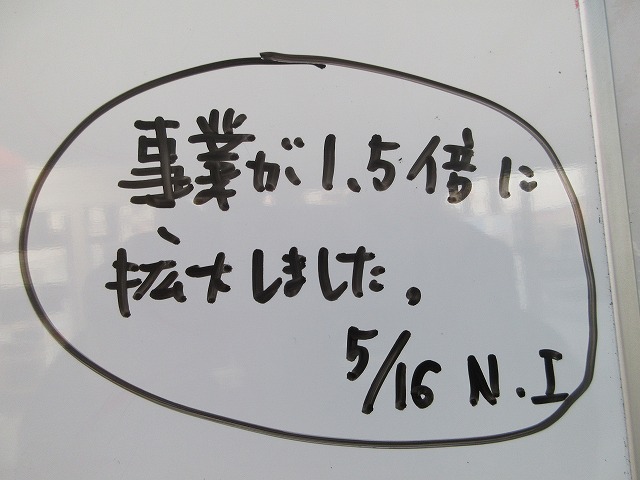 事業が1.5倍に
拡大しました。
5/16 N.I